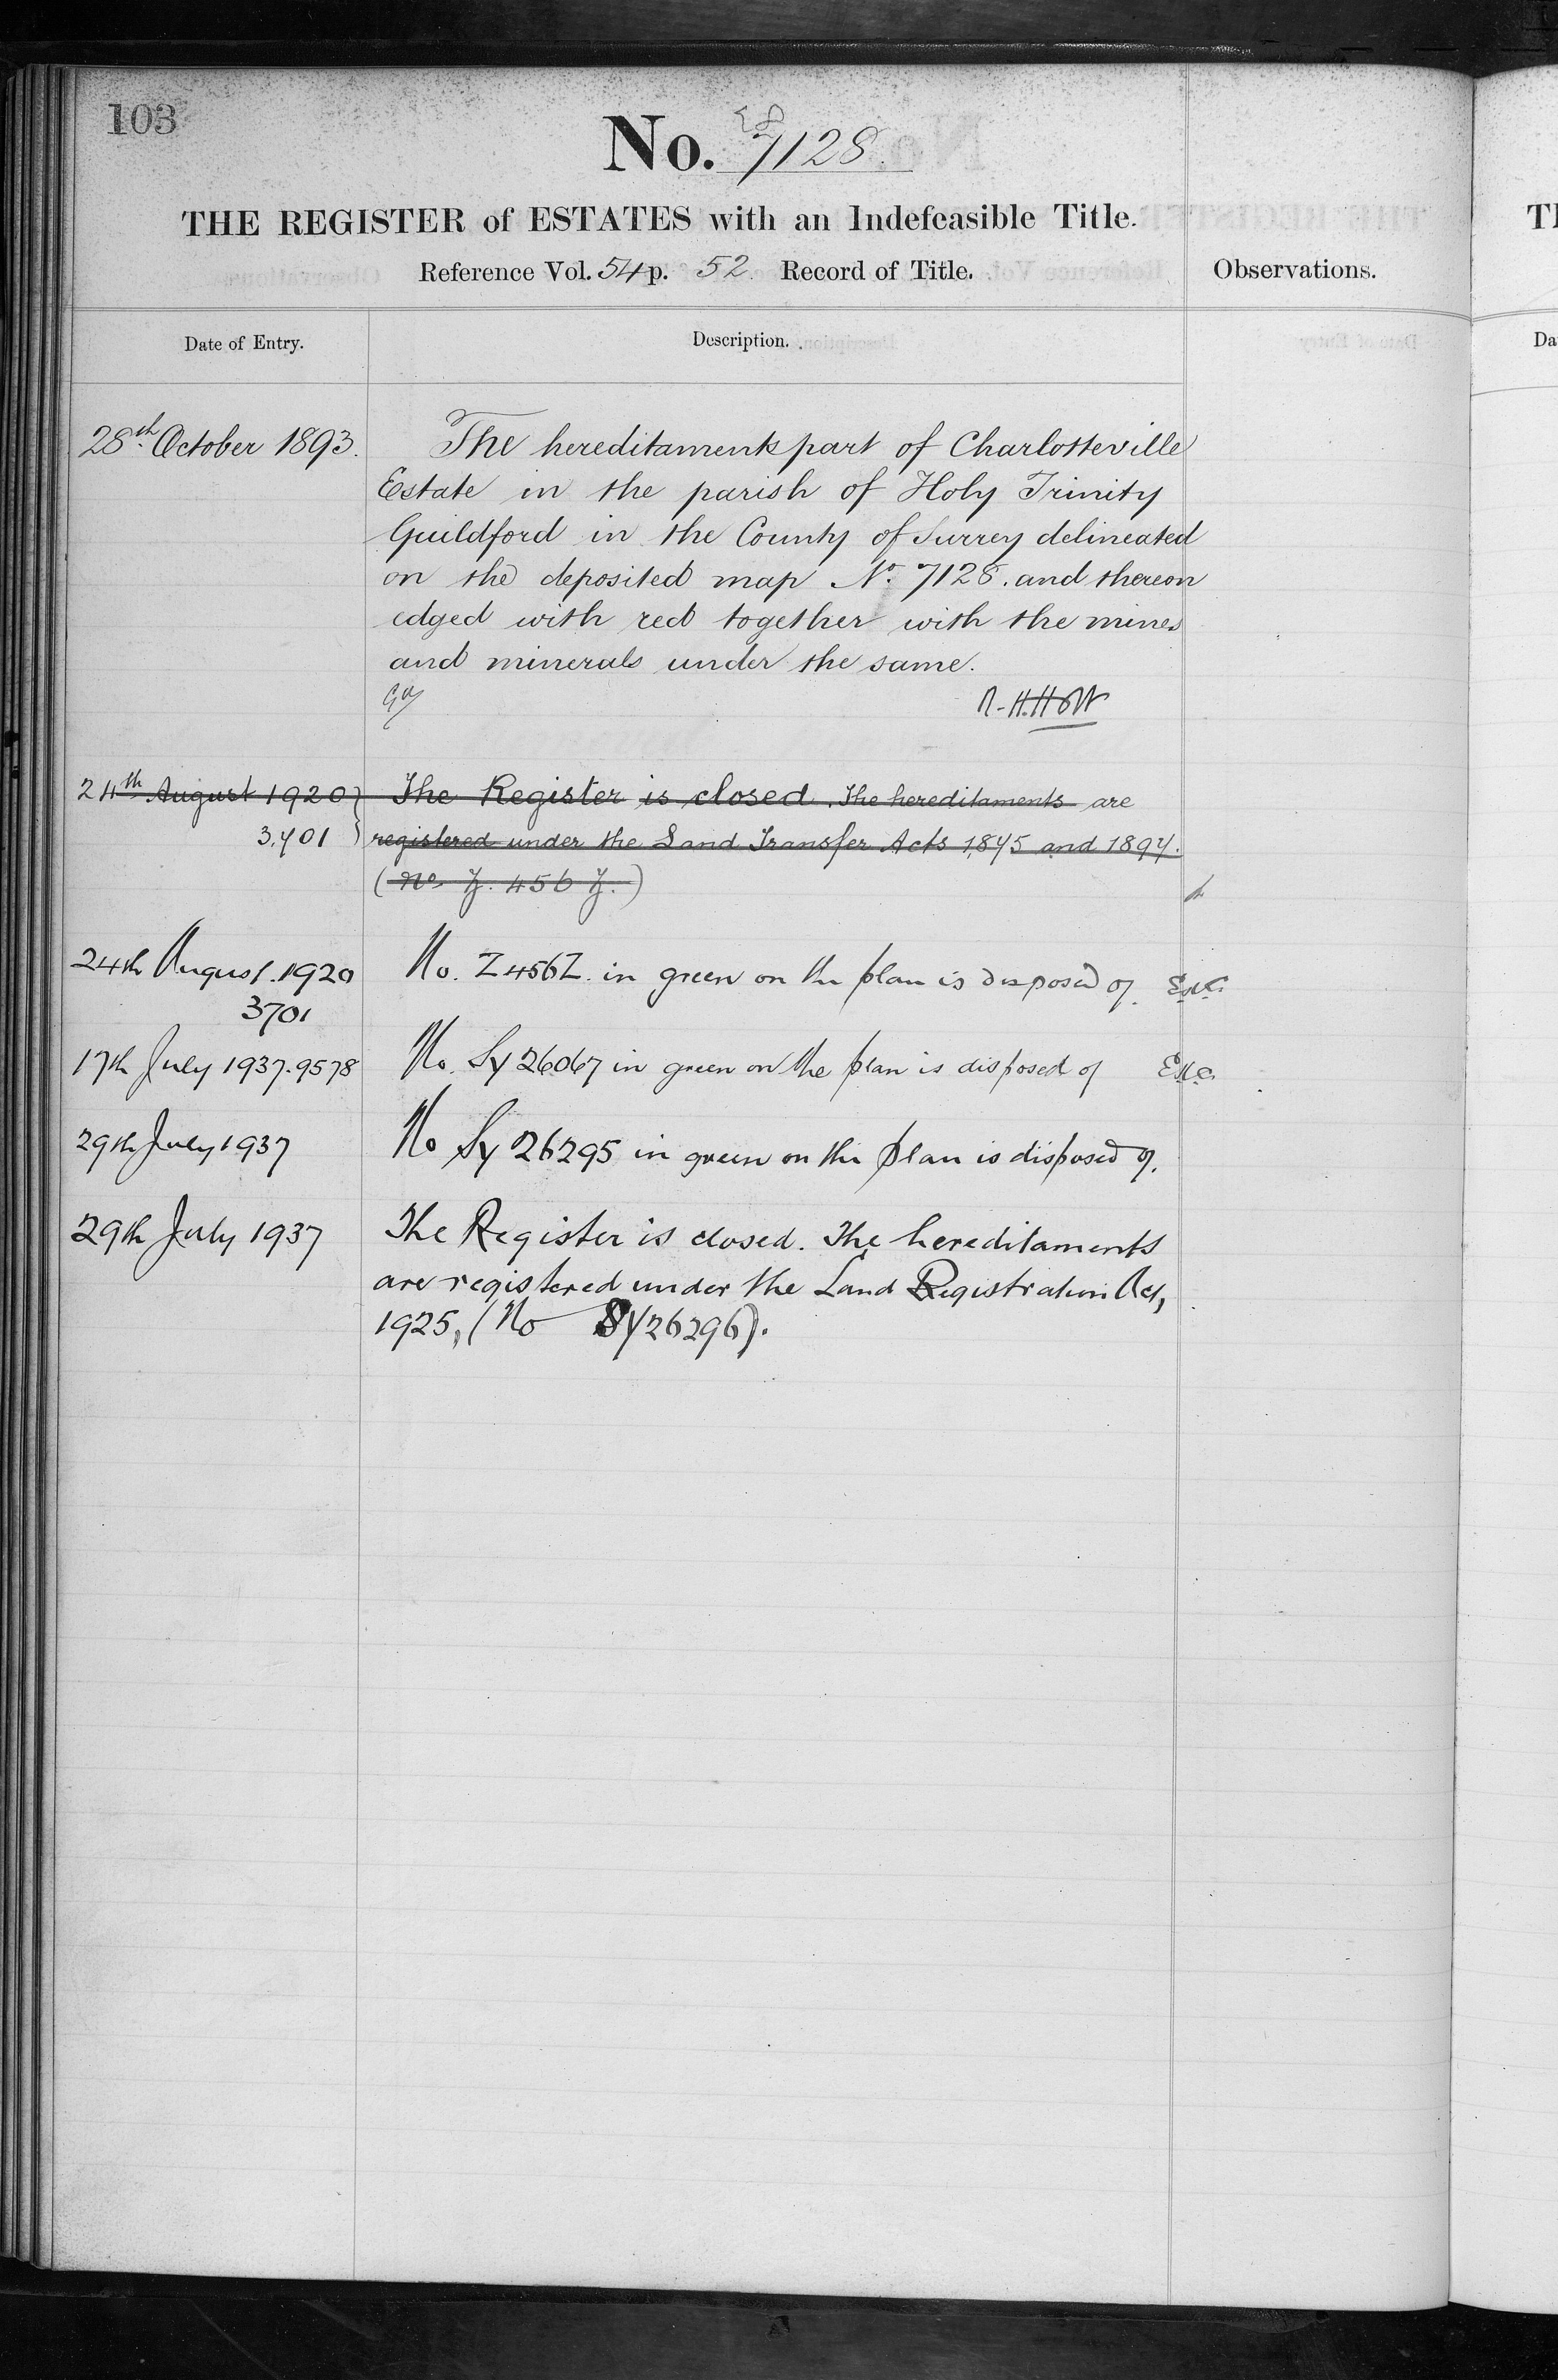 103
No. 7128.
THE REGISTER of ESTATES with an Indefeasible Title.
Reference Vol. 54 p. 52 Record of Title.
Observations.
Date of Entry.
Description.
28th October 1893.
The hereditaments part of Charlotteville
Estate in the parish of Holy Trinity
Guildford in the County of Surrey delineated
on the deposited map No. 7128. and thereon
edged with red together with the mines
and minerals under the same.
R.H.Holt
24th August 1920 The Register is closed. The hereditaments are
3,701 registered under the Land Transfer Acts 1875 and 1897.
(No Z. 456 Z.)
24th August. 1920 No. Z456Z. in green on the plan is disposed of.
3701
17th July 1937. 9578 No. Sy 26067 in green on the plan is disposed of
29th July 1937 No Sy 26295 in green on the plan is disposed of.
29th July 1937 The Register is closed. The hereditaments
are registered under the Land Registration Act,
1925, (No SY26296).
Tl
Da